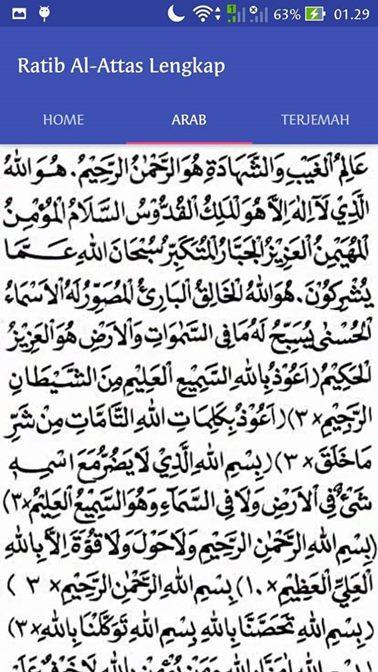 63% 01.29
Ratib Al-Attas Lengkap
HOME ARAB TERJEMAH
عَالِمُ الْغَيْبِ وَالشَّهَادَةِ هُوَ الرَّحْمٰنُ الرَّحِيْمُ. هُوَ اللهُ
الَّذِيْ لَآ اِلٰهَ اِلَّا هُوَ الْمَلِكُ الْقُدُّوْسُ السَّلَامُ الْمُؤْمِنُ
الْمُهَيْمِنُ الْعَزِيْزُ الْجَبَّارُ الْمُتَكَبِّرُ سُبْحَانَ اللهِ عَمَّا
يُشْرِكُوْنَ. هُوَ اللهُ الْخَالِقُ الْبَارِئُ الْمُصَوِّرُ لَهُ الْاَسْمَآءُ
الْحُسْنٰى يُسَبِّحُ لَهُ مَا فِى السَّمٰوَاتِ وَالْاَرْضِ هُوَ الْعَزِيْزُ
الْحَكِيْمُ (اَعُوْذُ بِاللهِ السَّمِيْعِ الْعَلِيْمِ مِنَ الشَّيْطَانِ
الرَّجِيْمِ × ٣) (اَعُوْذُ بِكَلِمَاتِ اللهِ التَّآمَّاتِ مِنْ شَرِّ
مَا خَلَقَ × ٣) (بِسْمِ اللهِ الَّذِيْ لَا يَضُرُّ مَعَ اسْمِهِ
شَيْئٌ فِى الْاَرْضِ وَلَا فِى السَّمَآءِ وَهُوَ السَّمِيْعُ الْعَلِيْمُ × ٣)
(بِسْمِ اللهِ الرَّحْمٰنِ الرَّحِيْمِ وَلَا حَوْلَ وَلَا قُوَّةَ اِلَّا بِاللهِ
الْعَلِيِّ الْعَظِيْمِ × ١٠) (بِسْمِ اللهِ الرَّحْمٰنِ الرَّحِيْمِ × ٣)
(بِسْمِ اللهِ تَحَصَّنَّا بِاللهِ بِسْمِ اللهِ تَوَكَّلْنَا بِاللهِ × ٣)